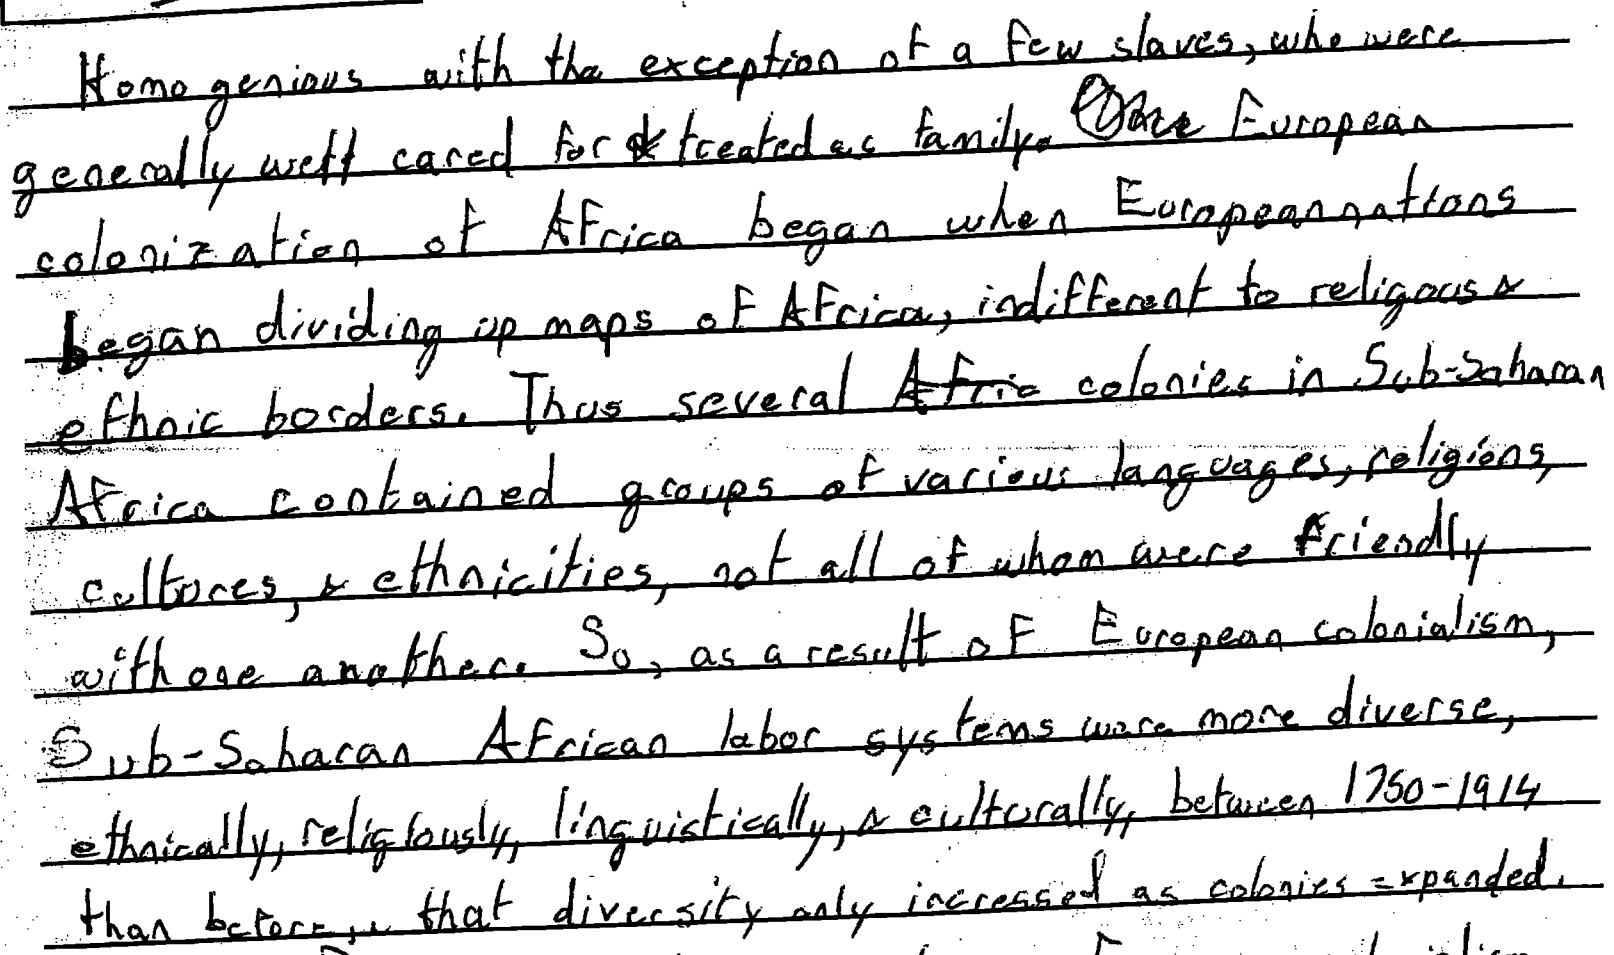 Homogenious with the exception of a few slaves, who were
generally well cared for & treated as family. European
colonization of Africa began when European nations
began dividing up maps of Africa, indifferent to religous &
ethnic borders. Thus several Afric colonies in Sub-Saharan
Africa contained groups of various languages, religions,
cultures, & ethnicities, not all of whom were friendly
with one another. So, as a result of European colonialism,
Sub-Saharan African labor systems were more diverse,
ethnically, religiously, linguistically, & culturally, between 1750-1914
than before, & that diversity only increased as colonies expanded.